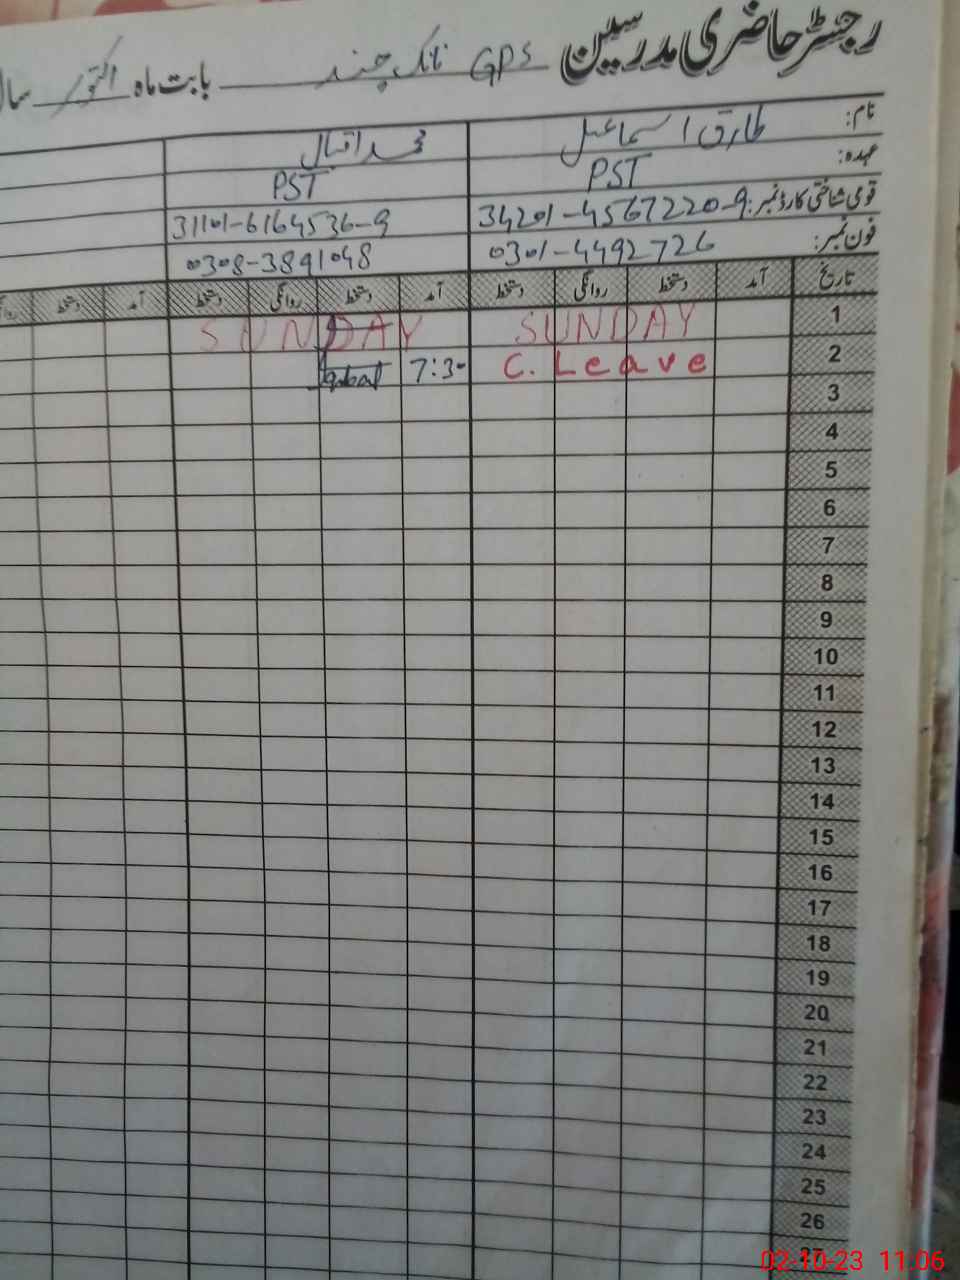 رجسٹر حاضری مدرسین GPS نانک چند بابت ماہ اکتوبر
نام: طارق اسماعیل محمد اقبال
عہدہ: PST PST
قومی شناختی کارڈ نمبر: 34201-4567220-9 31101-6164536-9
فون نمبر: 0301-4492726 0308-3891048
تاریخ آمد دستخط روانگی دستخط آمد دستخط روانگی دستخط آمد دستخط
1 SUNDAY SUNDAY
2 C. Leave 7:30 Iqbal
3
4
5
6
7
8
9
10
11
12
13
14
15
16
17
18
19
20
21
22
23
24
25
26
02-10-23 11:06